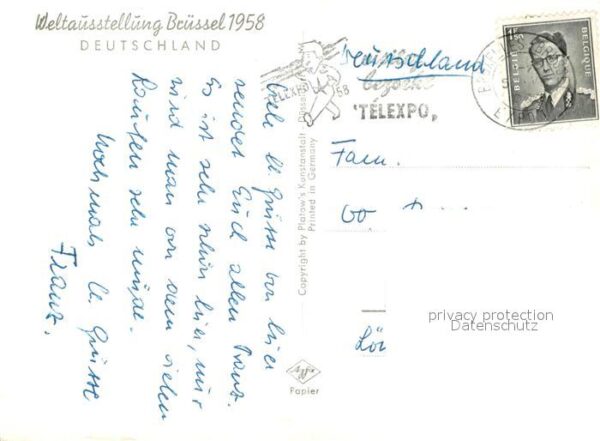 Weltausstellung Brüssel 1958
DEUTSCHLAND
Viele lb. Grüsse von hier
sendet Euch allen Franz.
Es ist sehr schön hier, nur
wird man von dem vielen
Laufen sehr müde.
Nochmals lb. Grüsse
Franz.
Copyright by Platow's Kunstanstalt · Düsseldorf
Printed in Germany
Agfa
Papier
TELEXPO 58
bezoekt
"TÉLEXPO"
BELGIE BELGIQUE
Deutschland
Fam.
privacy protection
Datenschutz